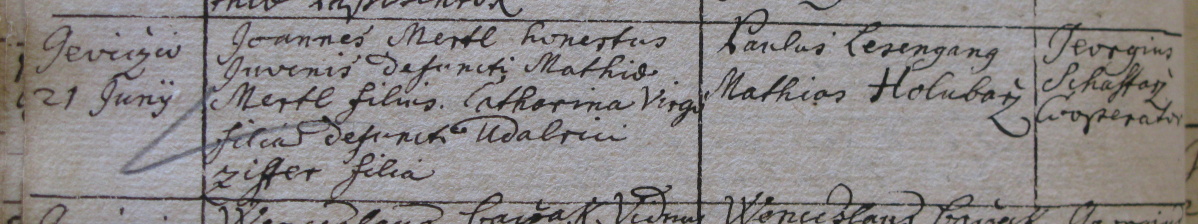 Jeviczio
21 Junij
Joannes Mertl honestus
Juvenis defuncti Mathiæ
Mertl filius. Catharina Virgo
filia defuncti Udalrici
ziffer filia
Paulus Lesengang
Mathias Holubarz
Georgius
Schaffarz
Cooperator
Wenceslaus
Viduus
Wenceslaus